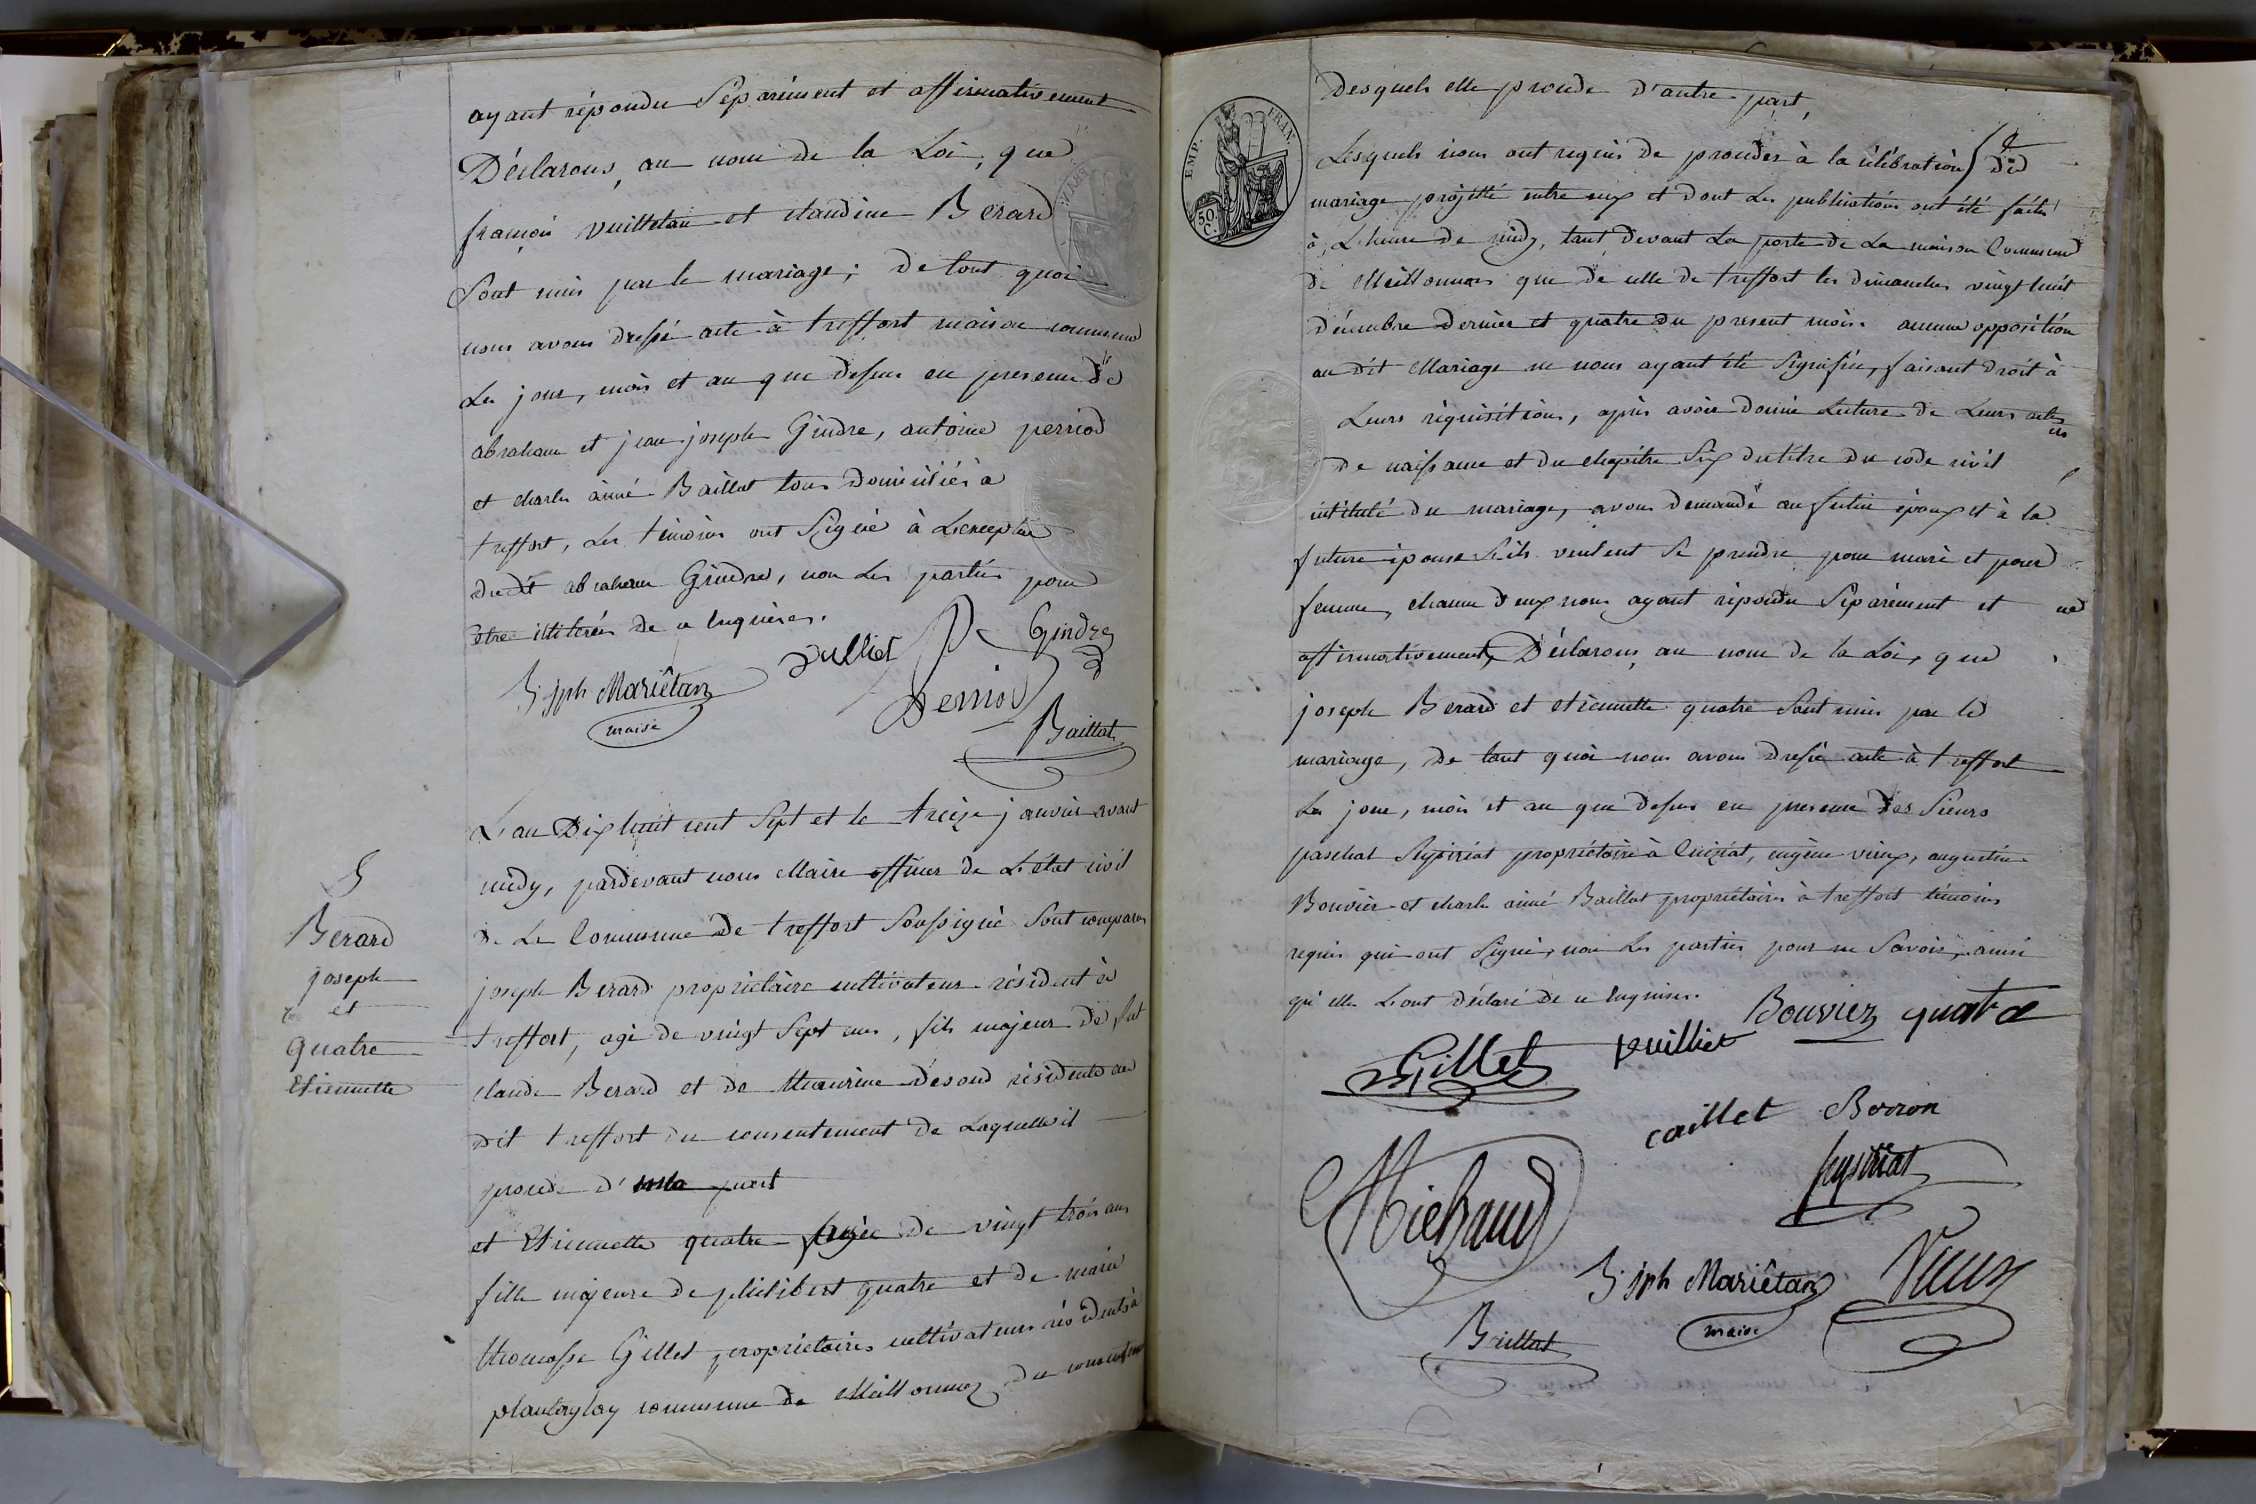 ayant répondu Séparément et affirmativement
Déclarons, au nom de la Loi, que
françois vuilletan et claudine Berard
Sont unis par le mariage; de tout quoi
nous avons dressé acte à treffort maison commune
Les jour, mois et an que dessus en presence de
abraham et jean joseph Gindre, antoine perriod
et charles aimé Baillat tous domiciliés à
treffort, Les témoins ont Signé à L'exception
dudit abraham Gindre, non Les parties pour
être illiterées de ce Enquises.
B. jph Mariêtan
maire
Vulliet
Gindre
Perriod
Baillat
5
Berard
joseph
et
quatre
Etiennette
L'an Dix huit cent Sept et le treize janvier avant
midy, pardevant nous Maire officier de L'état civil
de La Commune de treffort Soussigné Sont comparus
joseph Berard propriétaire cultivateur résident à
treffort, agé de vingt Sept ans, fils majeur de fut
claude Berard et de Maurine résidente au
dit treffort du consentement de Laquelle il
procede d'une part
et Etiennette quatre agée de vingt trois ans
fille majeure de philibert quatre et de marie
thomasse Gillet propriétaires cultivateurs résidents à
plantaglay commune de Meillonnaz du consentement
EMP. FRAN.
50 C.
Desquels elle procede d'autre part,
Lesquels nous ont requis de proceder à la célébration du
mariage projetté entre eux et dont Les publications ont été faites
à L'heure de midy, tant devant La porte de La maison Commune
de Meillonnas que de celle de treffort les dimanches vingt huit
décembre dernier et quatre du present mois. aucune opposition
au dit Mariage ne nous ayant été Signifiée, faisant droit à
Leurs réquisitions, après avoir donné Lecture de Leurs actes
de naissance et du chapitre Six du titre du code civil
intitulé du mariage, avons demandé au futur époux et à la
future épouse s'ils veulent Se prendre pour mari et pour
femme, chacun d'eux nous ayant répondu Séparément et
affirmativement, Déclarons au nom de la Loi, que
joseph Berard et etiennette quatre Sont unis par le
mariage, de tout quoi nous avons dressé acte à treffort
Les jour, mois et an que dessus en presence des Sieurs
paschal Seysiriat propriétaire à Cuiziat, eugène vieux, augustin
Bouvier et charles aimé Baillat propriétaires à treffort témoins
requis qui ont Signé, non Les parties pour ne Savoir, ainsi
qu'elles L'ont déclaré de ce Enquises.
Bouvier quatre
Gillet
vuilliet
caillet Borron
Michaud
Seysiriat
B. jph Mariêtan
maire
Vieux
Baillat